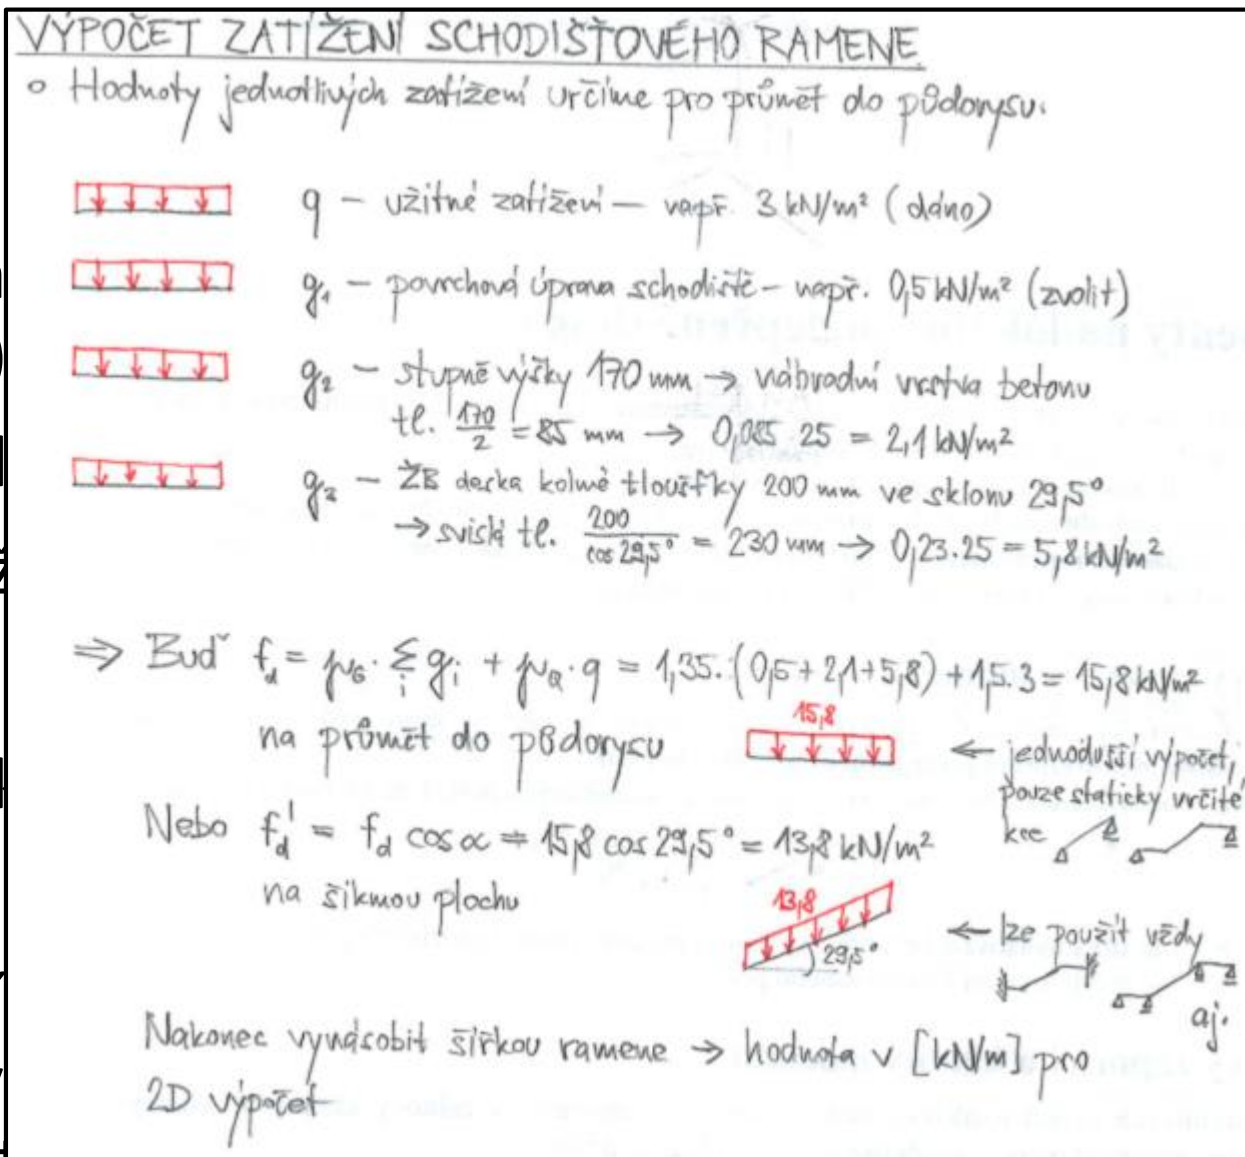 VÝPOČET ZATÍŽENÍ SCHODIŠŤOVÉHO RAMENE
o Hodnoty jednotlivých zatížení určíme pro průmět do půdorysu.
q – užitné zatížení – např. 3 kN/m² (dáno)
g₁ – povrchová úprava schodiště – např. 0,5 kN/m² (zvolit)
g₂ – stupně výšky 170 mm → náhradní vrstva betonu
tl. 170/2 = 85 mm → 0,085 . 25 = 2,1 kN/m²
g₃ – ŽB deska kolmé tloušťky 200 mm ve sklonu 29,5°
→ svislá tl. 200/cos 29,5° = 230 mm → 0,23 . 25 = 5,8 kN/m²
⇒ Buď f_d = γ_G · Σ_i g_i + γ_Q · q = 1,35 . (0,5 + 2,1 + 5,8) + 1,5 . 3 = 15,8 kN/m²
na průmět do půdorysu
15,8
← jednodušší výpočet,
pouze staticky určité
kce
Nebo f_d' = f_d cos α = 15,8 cos 29,5° = 13,8 kN/m²
na šikmou plochu
13,8
29,5°
← lze použít vždy
aj.
Nakonec vynásobit šířkou ramene → hodnota v [kN/m] pro
2D výpočet